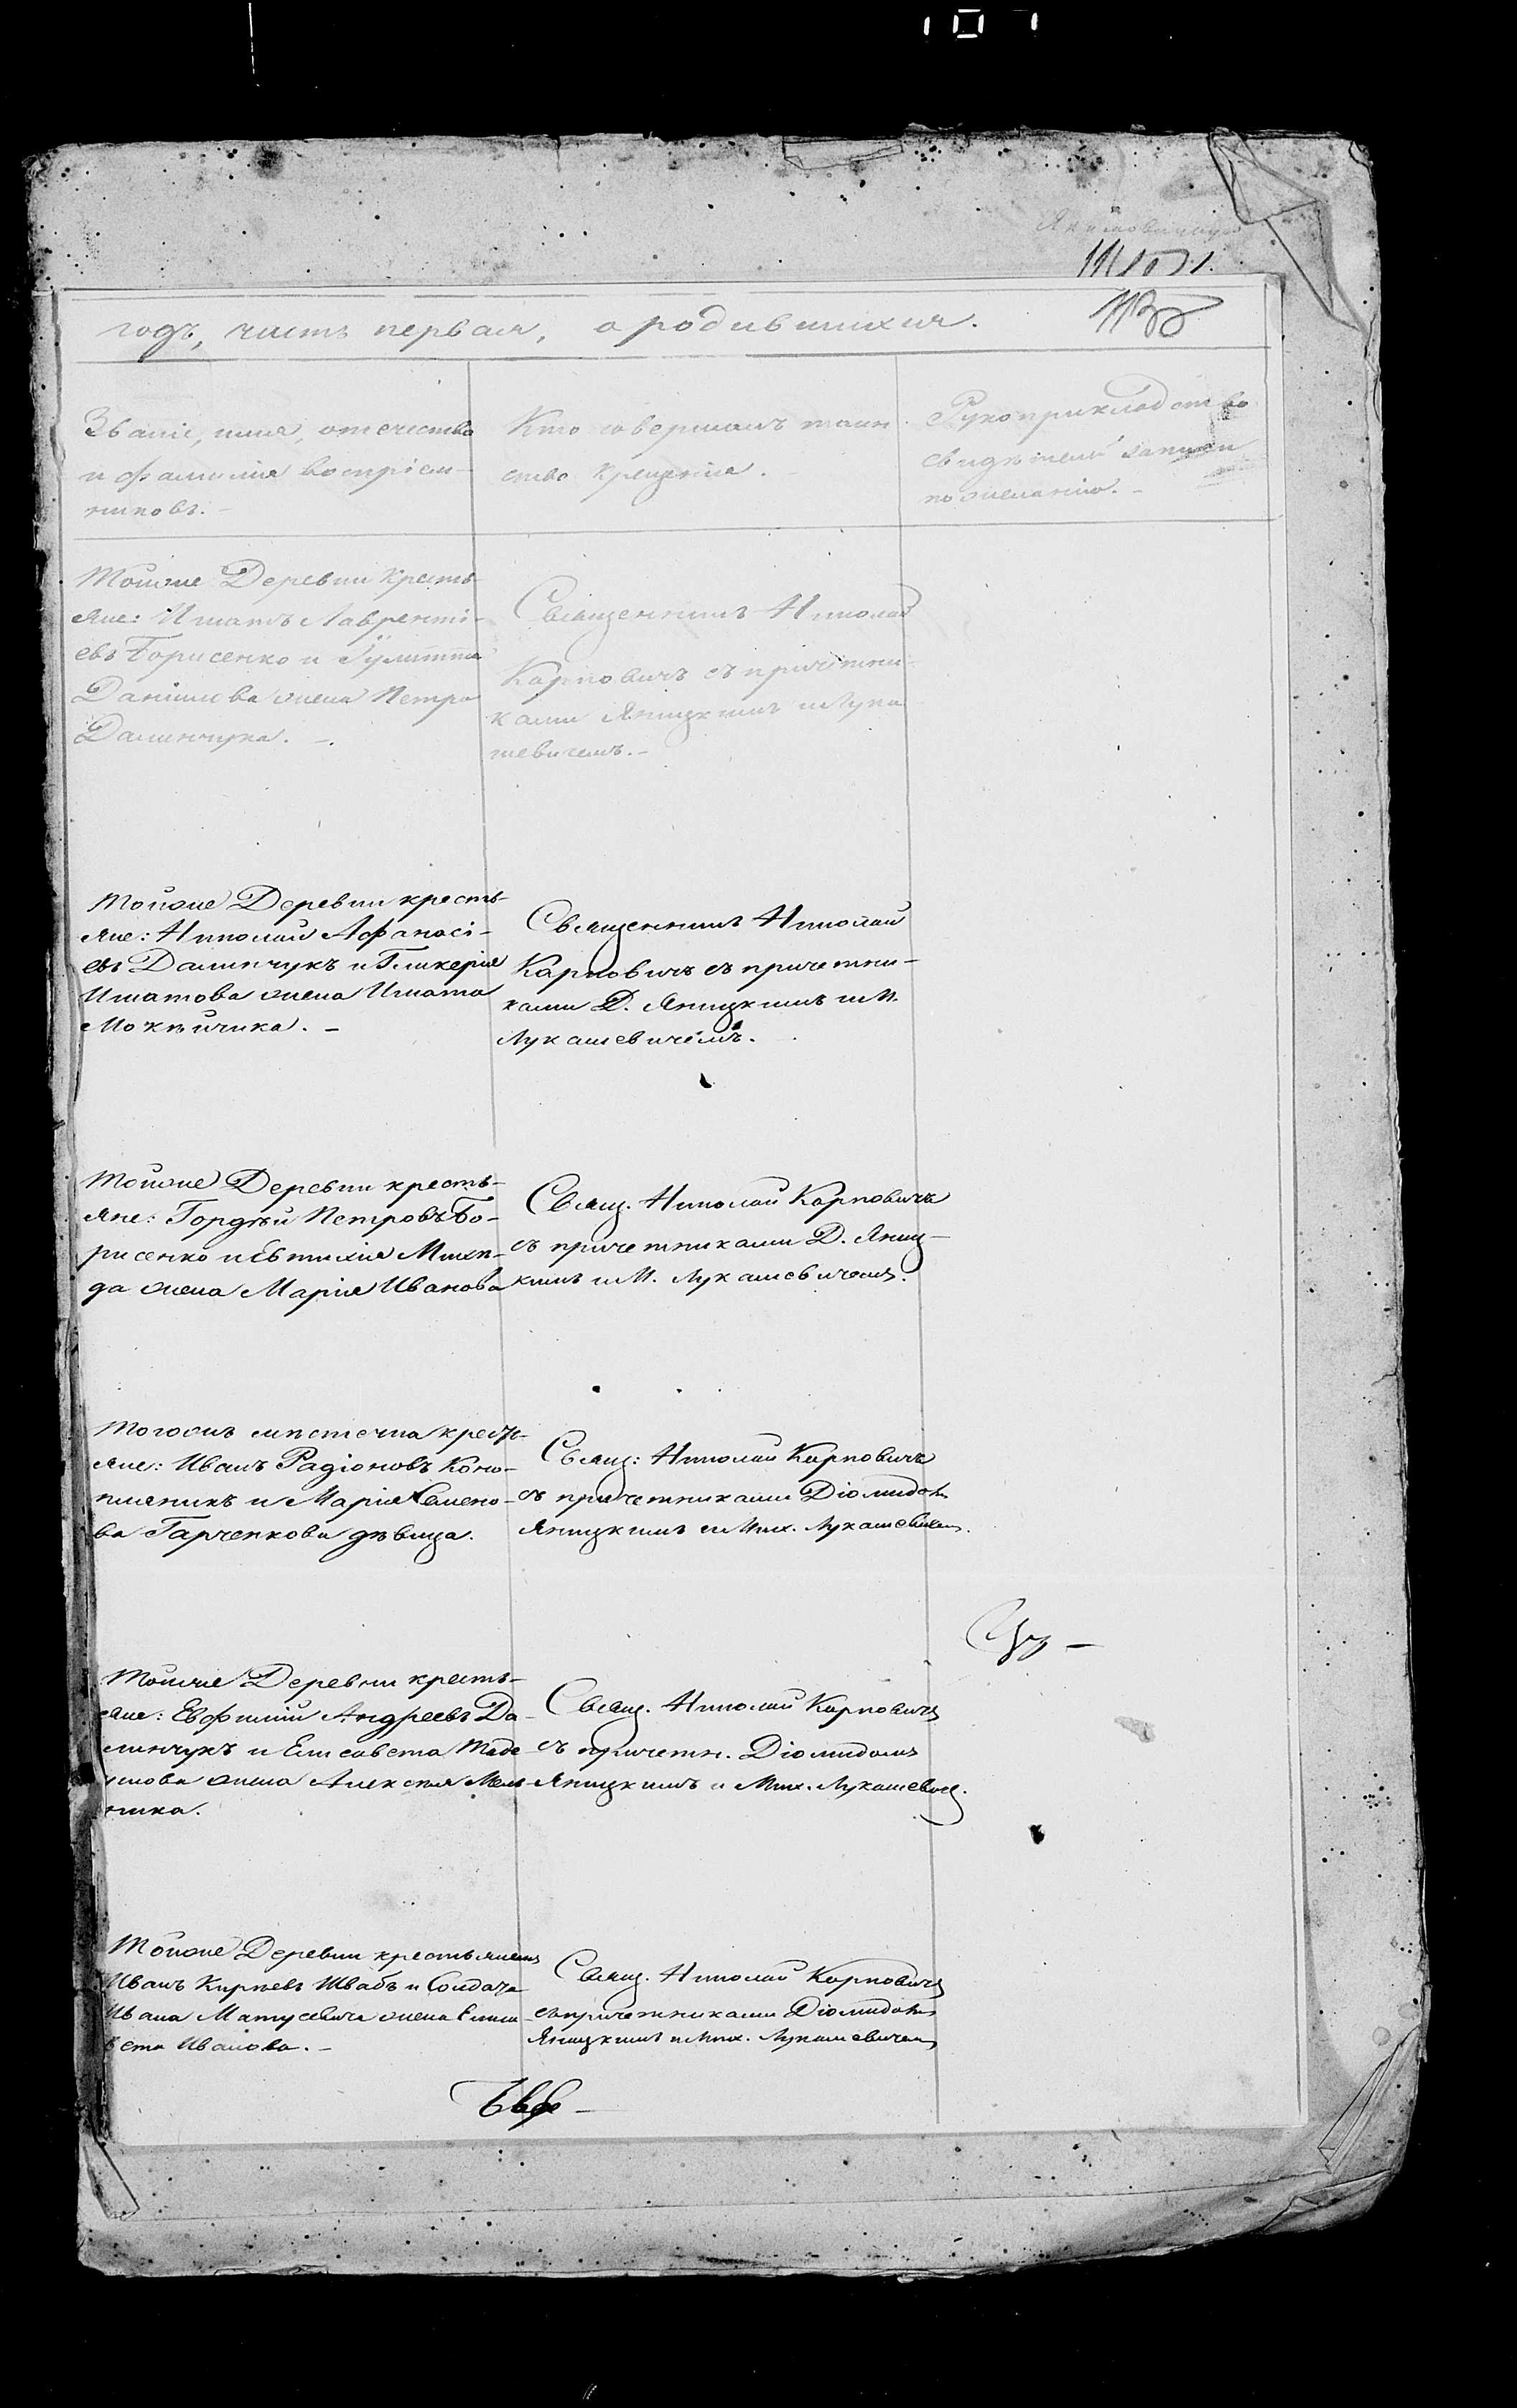 годъ, часть первая, о родившихся.
Званіе, имя, отчество
и фамилія воспріем-
никовъ.-
Кто совершалъ таин-
ство крещенія.
Рукоприкладство
свидѣтелей записи
по желанію.-
Тойже Деревни кресть-
яне: Игнатъ Лавренті-
евъ Борисенко и Іулитта
Даніилова жена Петра
Далинчука. -.
Священникъ Николай
Карповичъ съ причетни-
ками Яницкимъ и Лука-
шевичемъ.-
Тойже Деревни кресть-
яне: Николай Афанасі-
евъ Далинчукъ и Гликерія
Игнатова жена Игната
. -
Священникъ Николай
Карповичъ съ причетни-
ками Д. Яницкимъ и М.
Лукашевичемъ.
Тойже Деревни кресть-
яне: Гордѣй Петровъ Бо-
рисенко и Евтихія
жена Марія Иванова
Свящ. Николай Карповичъ
съ причетниками Д. Яниц-
кимъ и М. Лукашевичемъ.
Тогожъ мѣстечка кресть-
яне: Иванъ Радіоновъ Коно-
пляникъ и Марія Семено-
ва Гарченкова дѣвица.
Свящ: Николай Карповичъ
съ причетниками Діомидомъ
Яницкимъ и Мих. Лукашевичем.
Тойже Деревни кресть-
яне: Евфимій Андреевъ Да-
линчукъ и Елисавета Фаде
жена Алексѣя Мель-
ника.
Свящ. Николай Карповичъ
съ причетн. Діомидомъ
Яницкимъ и Мих. Лукашевич.
Тойже Деревни крестьянинъ
Иванъ Кирѣевъ Швабъ и Солдата
Ивана Матусевича жена Елиса-
вета Иванова.-
Свящ. Николай Карповичъ
съ причетниками Діомидомъ
Яницкимъ и Мих. Лукашевичем